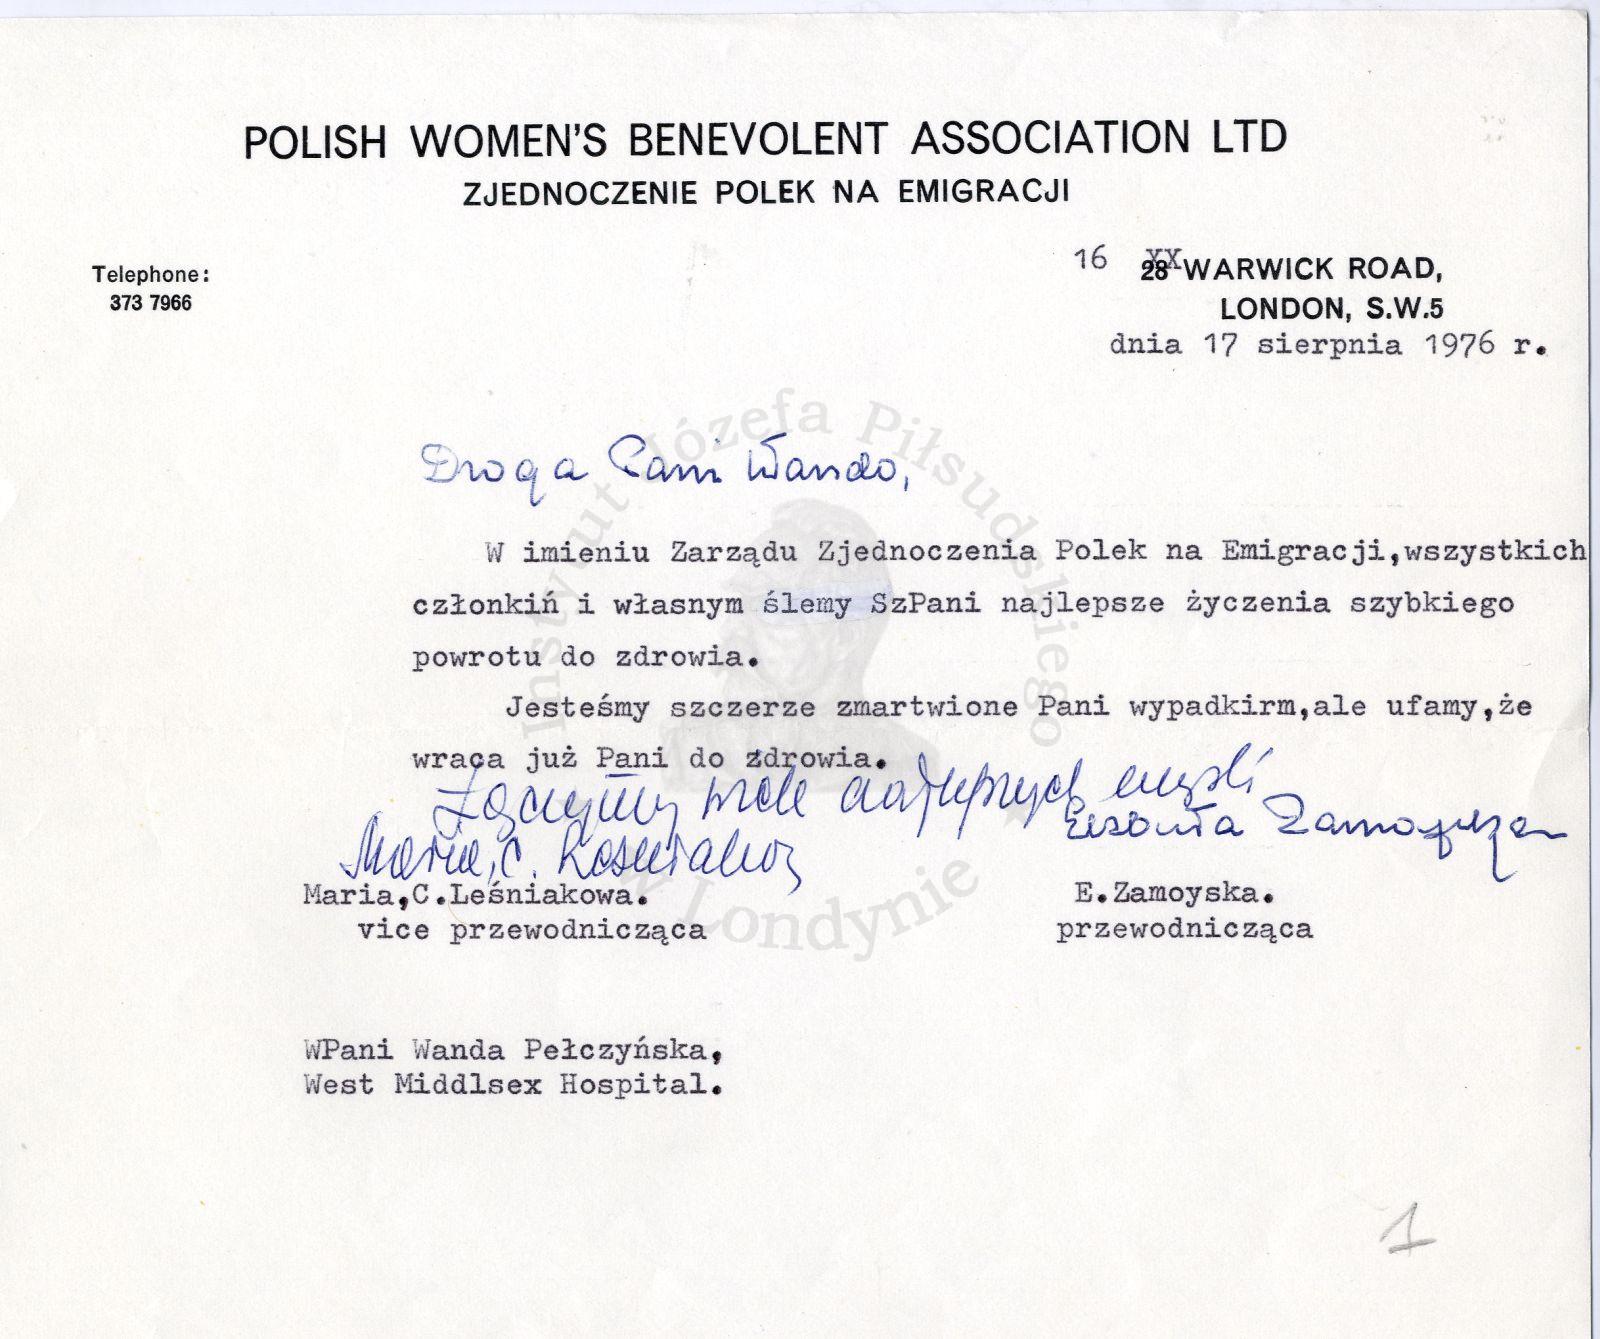 POLISH WOMEN'S BENEVOLENT ASSOCIATION LTD
ZJEDNOCZENIE POLEK NA EMIGRACJI
Telephone:
373 7966
16 28 WARWICK ROAD,
LONDON, S.W.5
dnia 17 sierpnia 1976 r.
Droga Pani Wando,
W imieniu Zarządu Zjednoczenia Polek na Emigracji,wszystkich
członkiń i własnym ślemy SzPani najlepsze życzenia szybkiego
powrotu do zdrowia.
Jesteśmy szczerze zmartwione Pani wypadkirm,ale ufamy,że
wraca już Pani do zdrowia.
Łączymy wiele najlepszych myśli
Zamoyska
Maria, C.
Maria,C.Leśniakowa.
vice przewodnicząca
E.Zamoyska.
przewodnicząca
WPani Wanda Pełczyńska,
West Middlsex Hospital.
1
Instytut Józefa Piłsudskiego
w Londynie